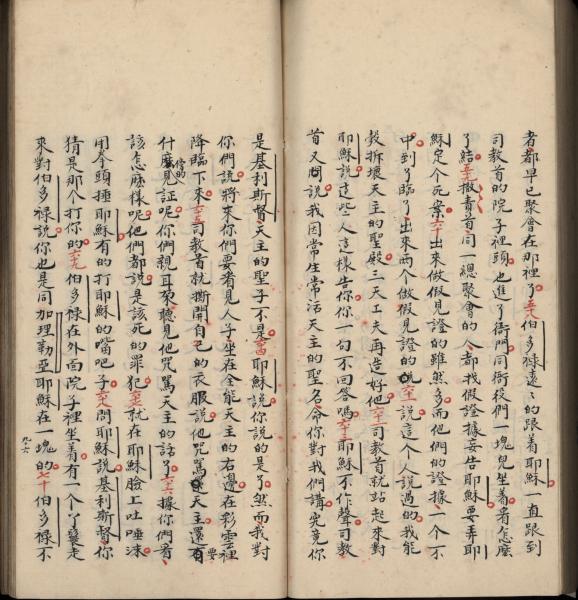 者都早已聚會在那裡了五十八伯多祿遠々的跟着耶穌一直跟到
司教首的院子裡頭也進了衙門同衙役們一塊兒坐着看怎麽
了結五十九撒責首同一總聚會的人都找假證據妄告耶穌要弄耶
穌定个死案六十出來做假見證的雖然多而他們的證據一个不
中到了臨了出來兩个做假見證的六十一說這个人說過的我能
彀拆壞天主的聖殿三天工夫再造好他六十二司教首就站起來對
耶穌說這些人這樣告你你一句不回答嗎六十三耶穌不作聲司教
首又問說我因常生常活天主的聖名命你對我們講究竟你
是基利斯督天主的聖子不是六十四耶穌說你說的是了然而我對
你們說將來你們要看見人子坐在全能天主的右邊在彩雲裡
降臨下來六十五司教首就撕開自己的衣服說他咒罵天主還要有
什麽見証呢你們親耳朶聽見他咒罵天主的話了六十六據你們看
該怎麽樣呢他們都說是該死的罪犯六十七就在耶穌臉上吐唾沫
用拳頭捶耶穌有的打耶穌的嘴吧子六十八問耶穌說基利斯督你
猜是那个打你的六十九伯多祿在外面院子裡坐着有一个丫鬟走
來對伯多祿說你也是同加理勒亞耶穌在一塊的七十伯多祿不
九六